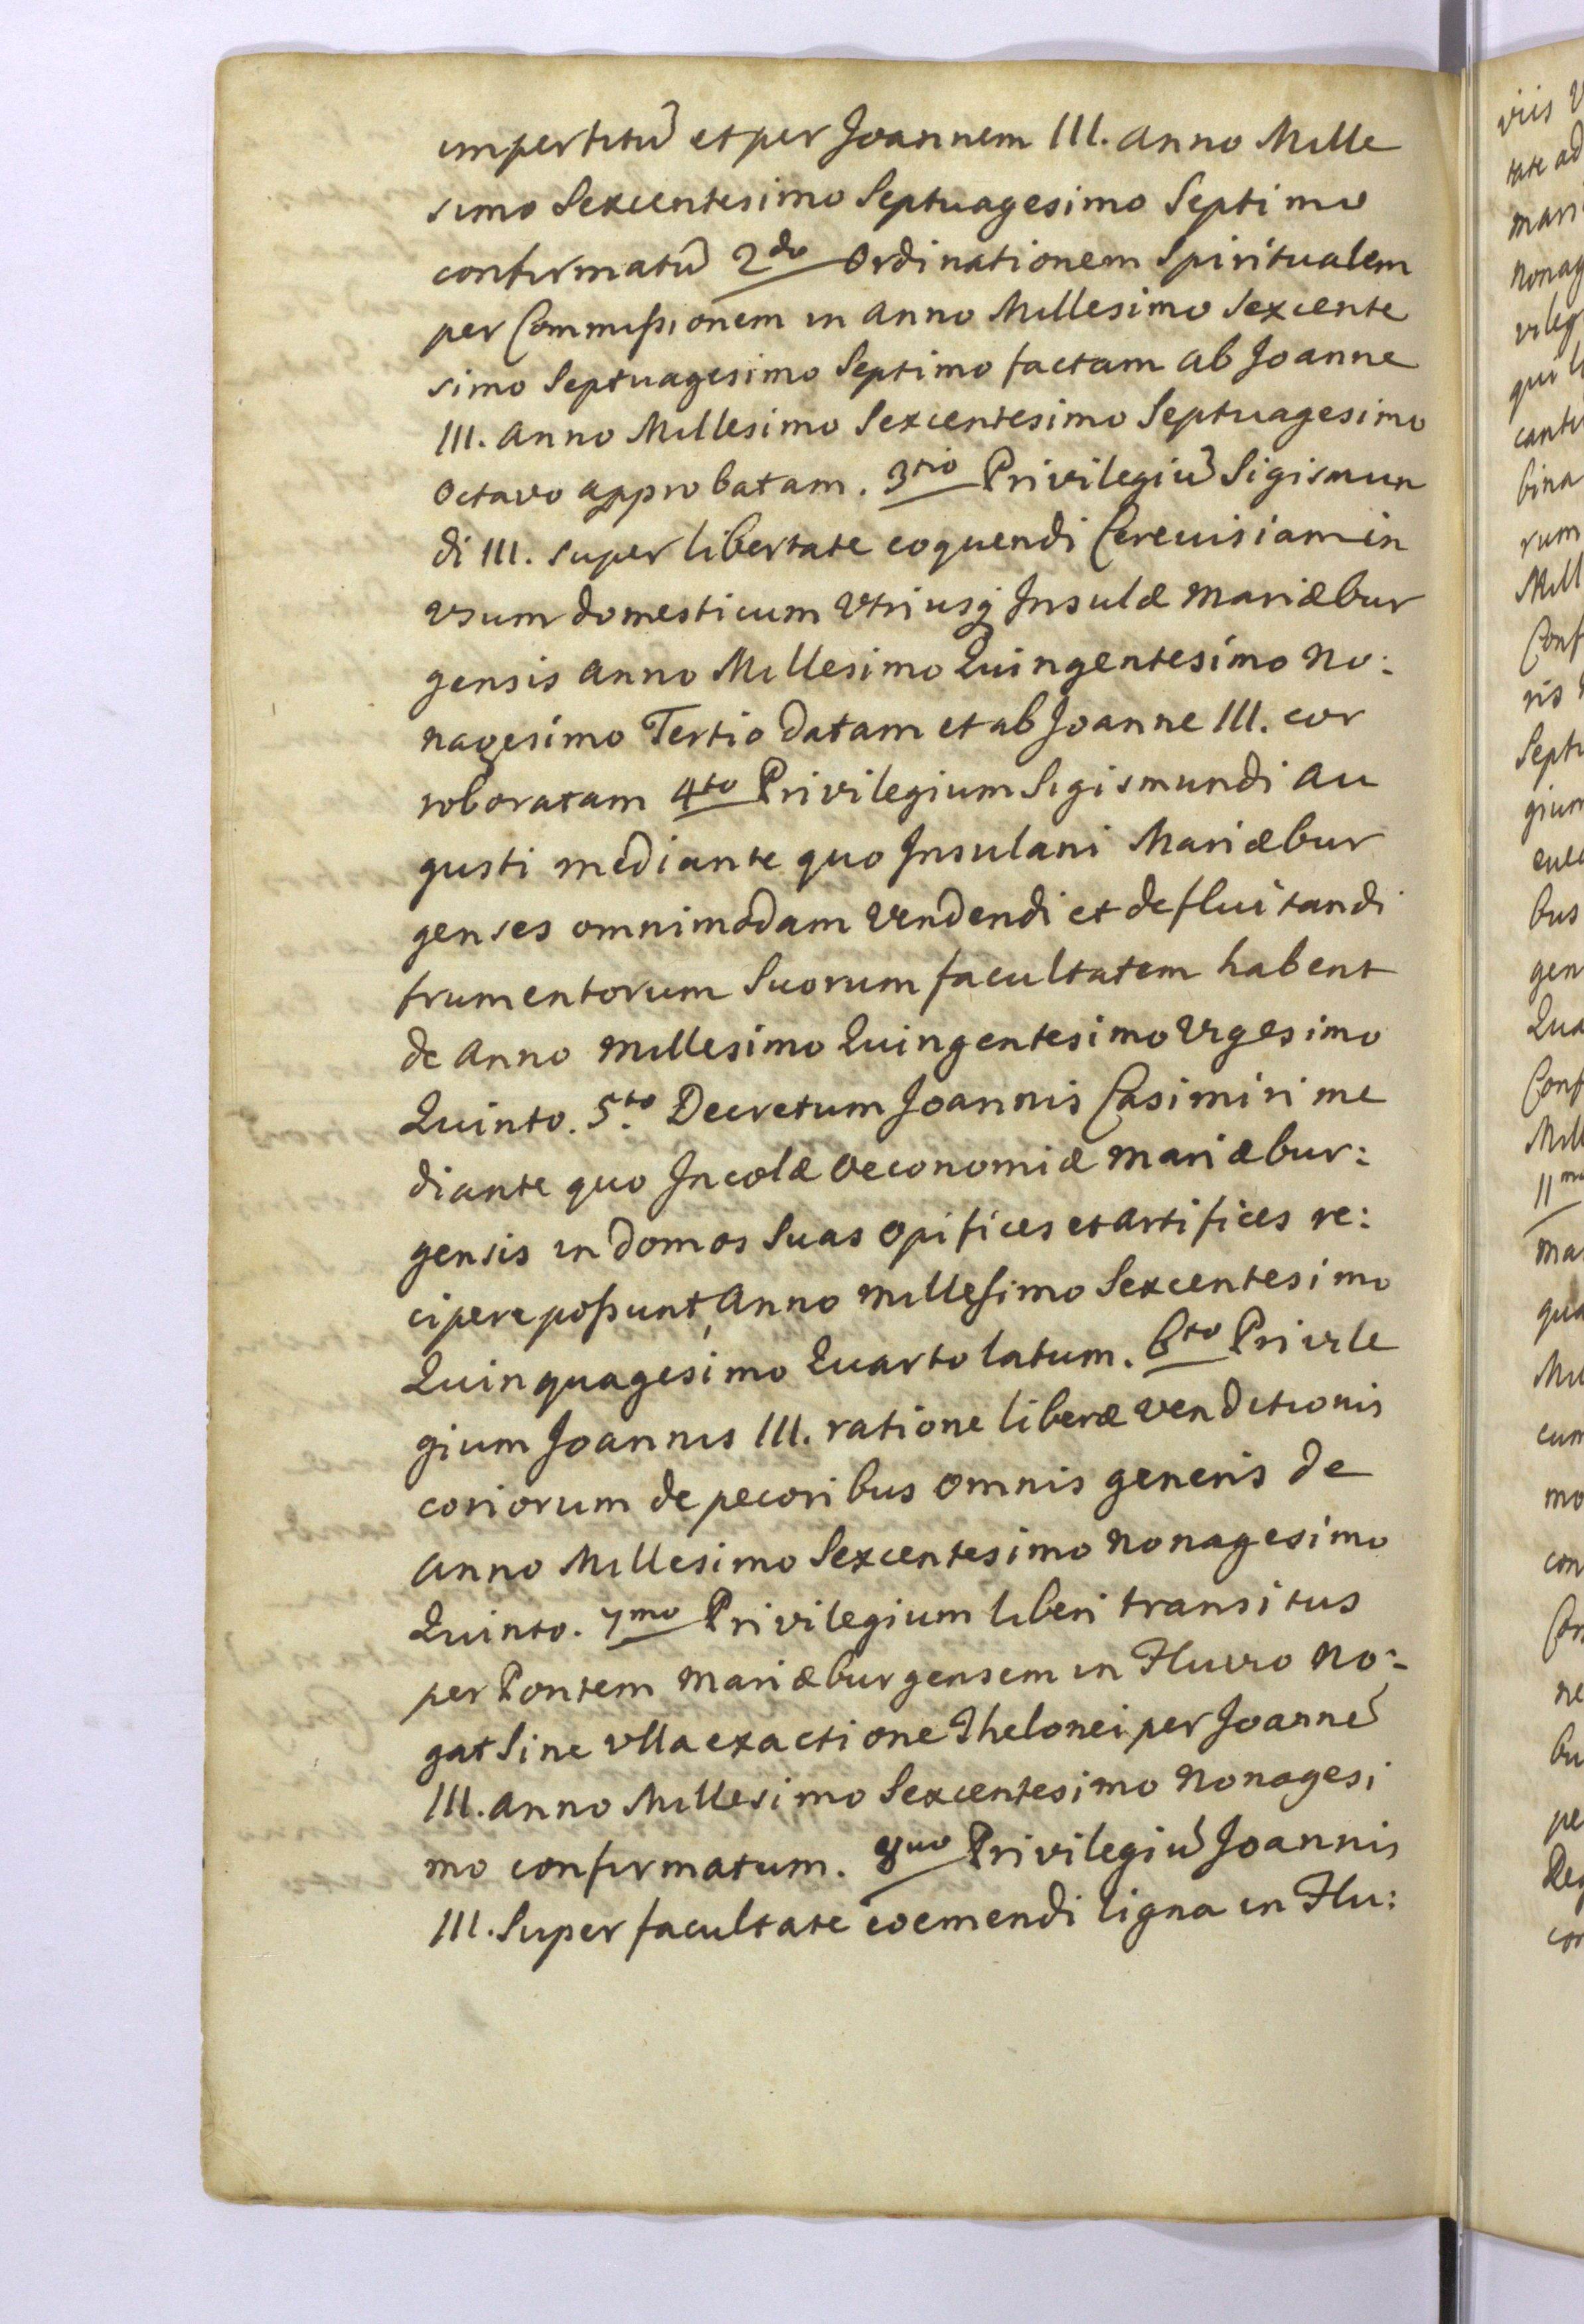 impertitũ et per Joannem III. anno Mille
simo Sexcentesimo Septuagesimo Septimo
confirmatũ 2do Ordinationem Spiritualem
per Commißionem in anno Millesimo Sexcente
simo Septuagesimo Septimo factam ab Joanne
III. anno Millesimo Sexcentesimo Septuagesimo
octavo approbatam. 3tio Privilegiũ Sigismun
di III. super libertate coquendi Cereuisiam in
vsum domesticum Vtriusq; Insulæ Mariæbur
gensis anno Millesimo Quingentesimo No:
nagesimo Tertio datam et ab Joanne III. cor
roboratam 4to Privilegium Sigismundi Au
gusti mediante quo Insulani Mariæbur
genses omnimodam Vendendi et defluitandi
frumentorum Suorum facultatem habent
de anno Millesimo Quingentesimo Vigesimo
Quinto. 5to. Decretum Joannis Casimiri me
diante quo Incolæ Oeconomiæ Mariæbur:
gensis in domos Suas opifices et artifices re:
cipere poßunt, anno Millesimo Sexcentesimo
Quinquagesimo Quarto latum. 6to Privile
gium Joannis III. ratione liberæ Venditionis
coriorum de pecoribus omnis generis de
anno Millesimo Sexcentesimo Nonagesimo
Quinto. 7mo Privilegium liberi transitus
per Pontem Mariæburgensem in Fluvio No:
gat Sine vlla exactione Thelonei per Joannẽ
III. anno Millesimo Sexcentesimo Nonagesi
mo confirmatum. 8uo Privilegiũ Joannis
III. Super facultate coemendi ligna in Flu:
viis
tate ad
mari
nonag
vileg
qui
cantu
bina
rum
Mill
Conf
ris
Sept
gium
bus
gen
Qua
Conf
Mill
11mo
mar
qua
Mil
cum
mo
con
ne
bu
pe
Reg
con